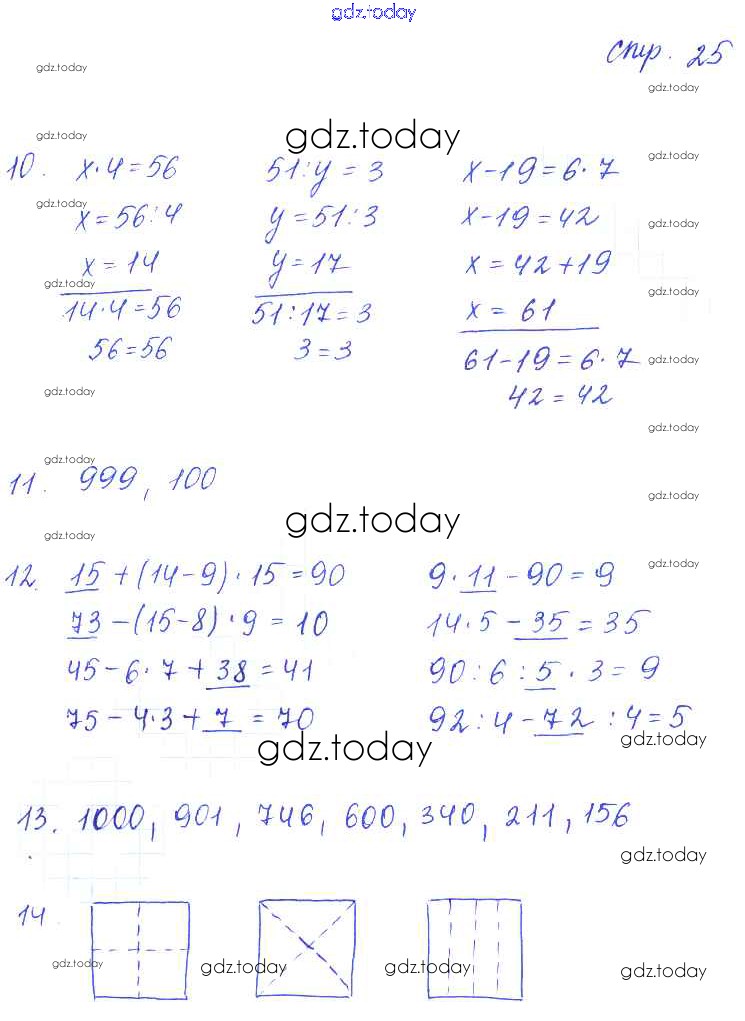 gdz.today
стр. 25
gdz.today
gdz.today
gdz.today
gdz.today
gdz.today
10. x·4=56 51:y=3 x-19=6·7
gdz.today
x=56:4 y=51:3 x-19=42
gdz.today
x=14 y=17 x=42+19
gdz.today
gdz.today
14·4=56 51:17=3 x=61
56=56 3=3 61-19=6·7
gdz.today
42=42
gdz.today
gdz.today
gdz.today
11. 999, 100
gdz.today
gdz.today
gdz.today
gdz.today
12. 15+(14-9)·15=90 9·11-90=9
73-(15-8)·9=10 14·5-35=35
45-6·7+38=41 90:6:5·3=9
75-4·3+7=70 92:4-72:4=5
gdz.today
gdz.today
13. 1000, 901, 746, 600, 340, 211, 156
gdz.today
14
gdz.today gdz.today gdz.today gdz.today